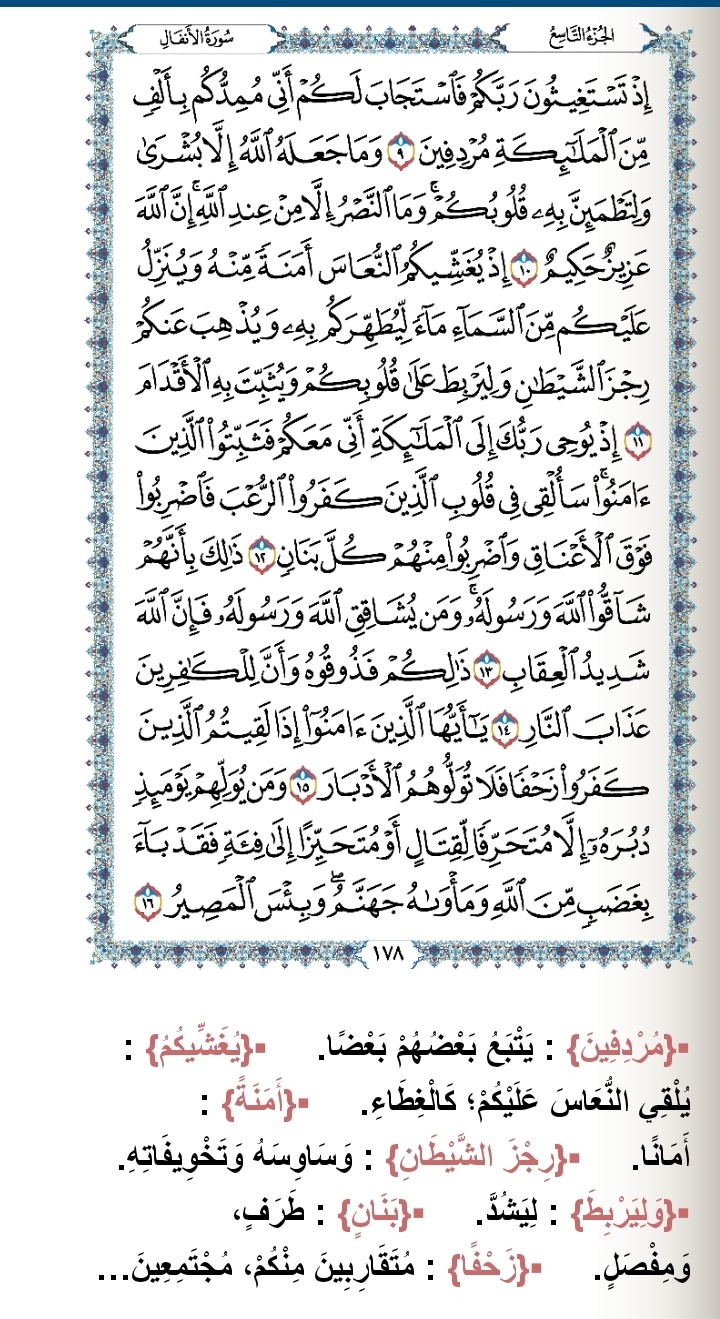 الجزء التاسع
سورة الأنفال
إِذْ تَسْتَغِيثُونَ رَبَّكُمْ فَٱسْتَجَابَ لَكُمْ أَنِّى مُمِدُّكُم بِأَلْفٍ
مِّنَ ٱلْمَلَٰٓئِكَةِ مُرْدِفِينَ ٩ وَمَا جَعَلَهُ ٱللَّهُ إِلَّا بُشْرَىٰ
وَلِتَطْمَئِنَّ بِهِۦ قُلُوبُكُمْ ۚ وَمَا ٱلنَّصْرُ إِلَّا مِنْ عِندِ ٱللَّهِ ۚ إِنَّ ٱللَّهَ
عَزِيزٌ حَكِيمٌ ١٠ إِذْ يُغَشِّيكُمُ ٱلنُّعَاسَ أَمَنَةً مِّنْهُ وَيُنَزِّلُ
عَلَيْكُم مِّنَ ٱلسَّمَآءِ مَآءً لِّيُطَهِّرَكُم بِهِۦ وَيُذْهِبَ عَنكُمْ
رِجْزَ ٱلشَّيْطَٰنِ وَلِيَرْبِطَ عَلَىٰ قُلُوبِكُمْ وَيُثَبِّتَ بِهِ ٱلْأَقْدَامَ
١١ إِذْ يُوحِى رَبُّكَ إِلَى ٱلْمَلَٰٓئِكَةِ أَنِّى مَعَكُمْ فَثَبِّتُوا۟ ٱلَّذِينَ
ءَامَنُوا۟ ۚ سَأُلْقِى فِى قُلُوبِ ٱلَّذِينَ كَفَرُوا۟ ٱلرُّعْبَ فَٱضْرِبُوا۟
فَوْقَ ٱلْأَعْنَاقِ وَٱضْرِبُوا۟ مِنْهُمْ كُلَّ بَنَانٍ ١٢ ذَٰلِكَ بِأَنَّهُمْ
شَآقُّوا۟ ٱللَّهَ وَرَسُولَهُۥ ۚ وَمَن يُشَاقِقِ ٱللَّهَ وَرَسُولَهُۥ فَإِنَّ ٱللَّهَ
شَدِيدُ ٱلْعِقَابِ ١٣ ذَٰلِكُمْ فَذُوقُوهُ وَأَنَّ لِلْكَٰفِرِينَ
عَذَابَ ٱلنَّارِ ١٤ يَٰٓأَيُّهَا ٱلَّذِينَ ءَامَنُوٓا۟ إِذَا لَقِيتُمُ ٱلَّذِينَ
كَفَرُوا۟ زَحْفًا فَلَا تُوَلُّوهُمُ ٱلْأَدْبَارَ ١٥ وَمَن يُوَلِّهِمْ يَوْمَئِذٍ
دُبُرَهُۥٓ إِلَّا مُتَحَرِّفًا لِّقِتَالٍ أَوْ مُتَحَيِّزًا إِلَىٰ فِئَةٍ فَقَدْ بَآءَ
بِغَضَبٍ مِّنَ ٱللَّهِ وَمَأْوَىٰهُ جَهَنَّمُ ۖ وَبِئْسَ ٱلْمَصِيرُ ١٦
١٧٨
▪{مُرْدِفِينَ} : يَتْبَعُ بَعْضُهُمْ بَعْضًا. ▪{يُغَشِّيكُمُ} :
يُلْقِي النُّعَاسَ عَلَيْكُمْ؛ كَالْغِطَاءِ. ▪{أَمَنَةً} :
أَمَانًا. ▪{رِجْزَ الشَّيْطَانِ} : وَسَاوِسَهُ وَتَخْوِيفَاتِهِ.
▪{وَلِيَرْبِطَ} : لِيَشُدَّ. ▪{بَنَانٍ} : طَرَفٍ،
وَمِفْصَلٍ. ▪{زَحْفًا} : مُتَقَارِبِينَ مِنْكُمْ، مُجْتَمِعِينَ...